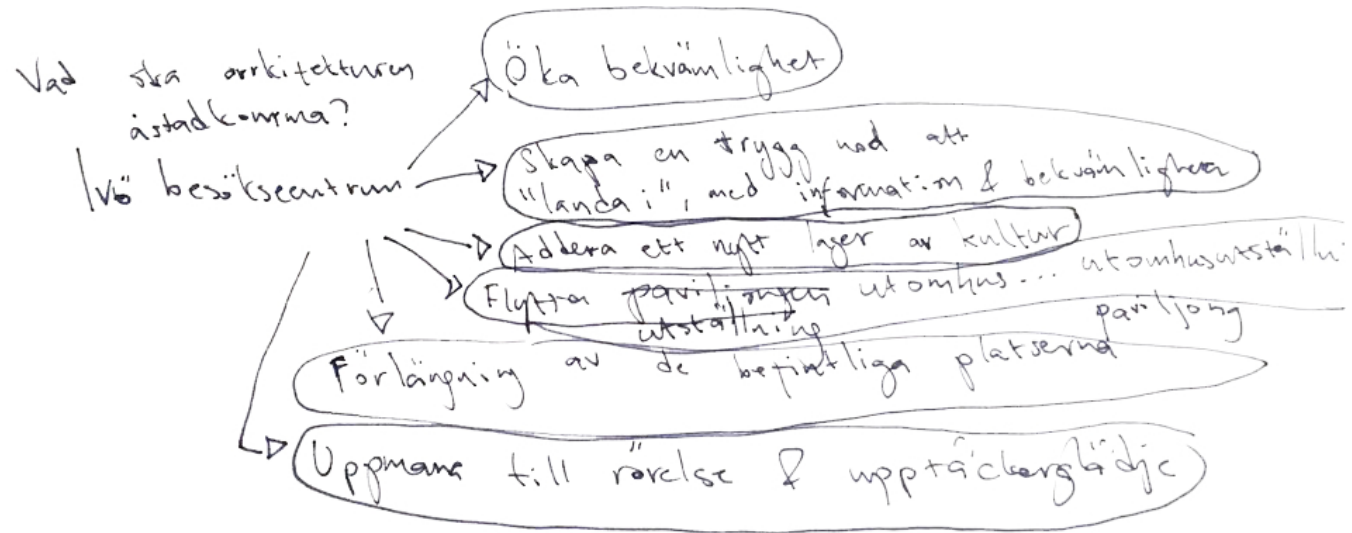 Vad ska arrkitekturen
åstadkomma?
Ivö besökscentrum
Öka bekvämlighet
Skapa en trygg nod att
"landa i", med information & bekvämligheter
Addera ett nytt lager av kultur
Flytta paviljongen utomhus... utomhusutställni
utställning
paviljong
Förlängning av de befintliga platserna
Uppmana till rörelse & upptäckarglädje